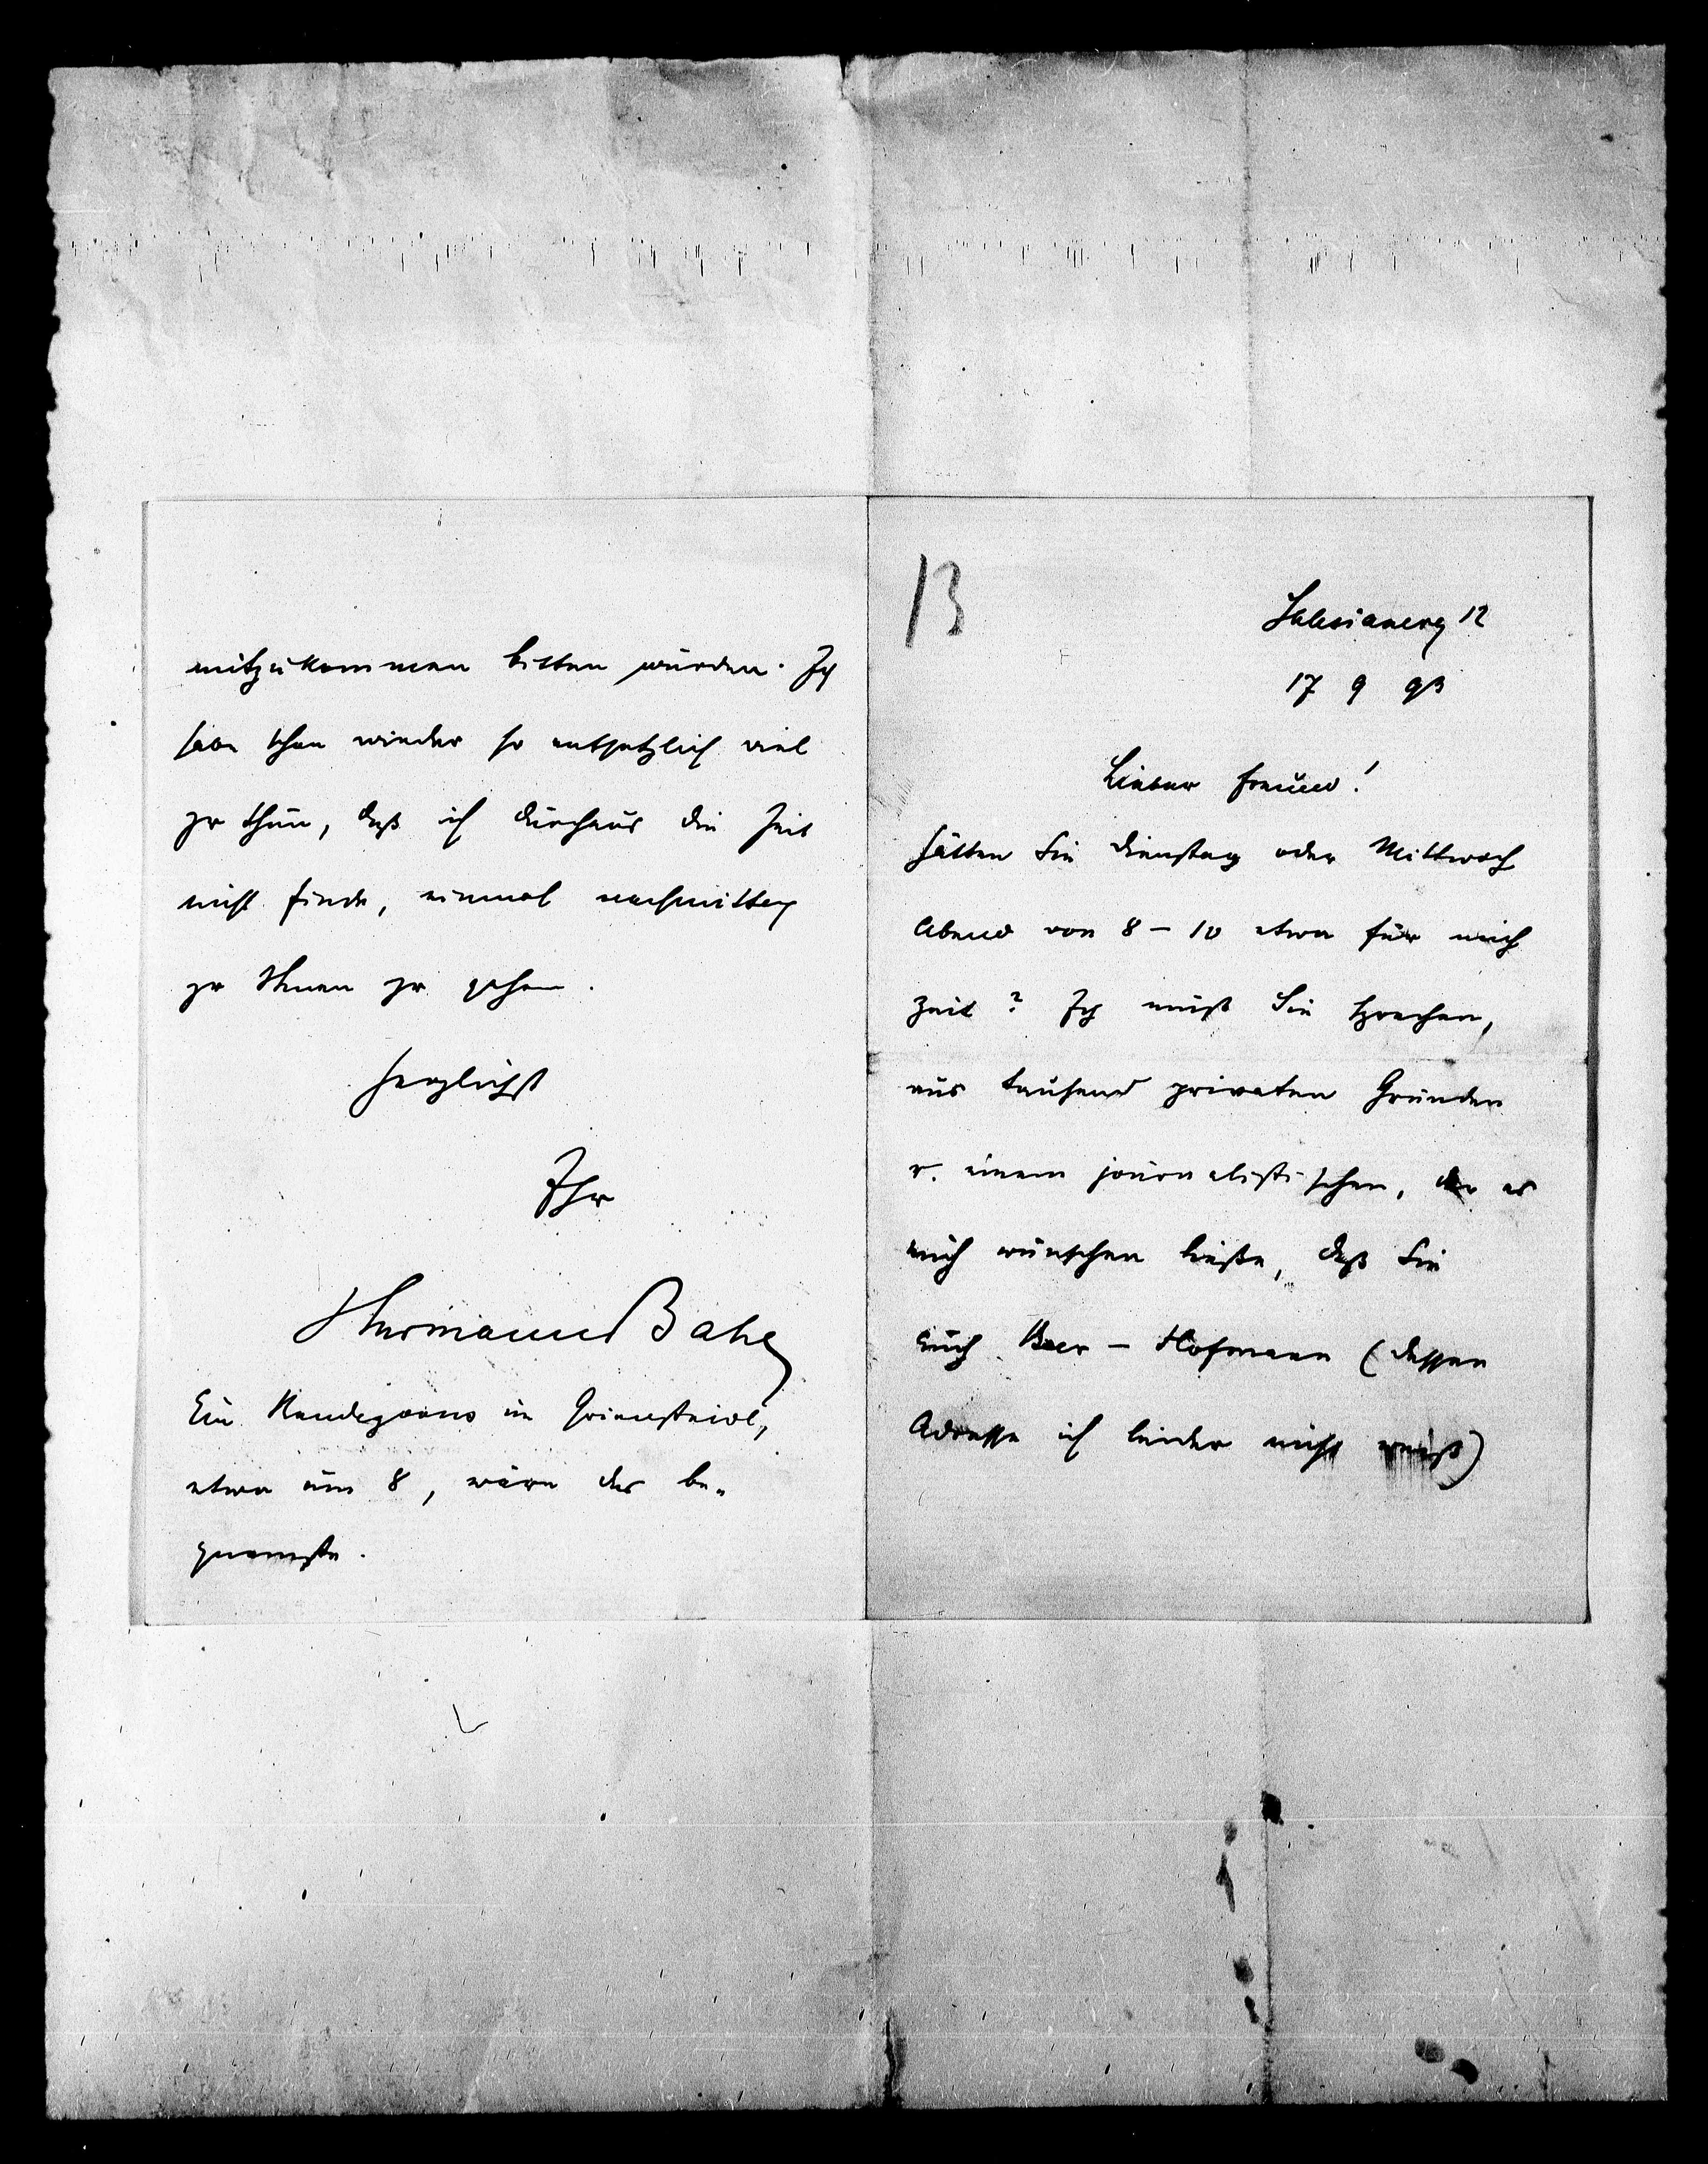 13
Salesianerg 12
17 9 93
Lieber Freund!
Hätten Sie Dienstag oder Mittwoch
Abend von 8 – 10 etwa für mich
Zeit? Ich muß Sie sprechen,
aus tausend privaten Gründen
u. einem journalistischen, der es
mich wünschen ließe, daß Sie
auch Beer – Hofmann (dessen
Adresse ich leider nicht weiß)
mitzukommen bitten würden. Ich
habe schon wieder so entsetzlich viel
zu thun, daß ich durchaus die Zeit
nicht finde, einmal nachmittag
zu Ihnen zu gehen.
Herzlichst
Ihr
Hermann Bahr
Ein Rendezvous im Griensteidl,
etwa um 8, wäre das be-
quemste.